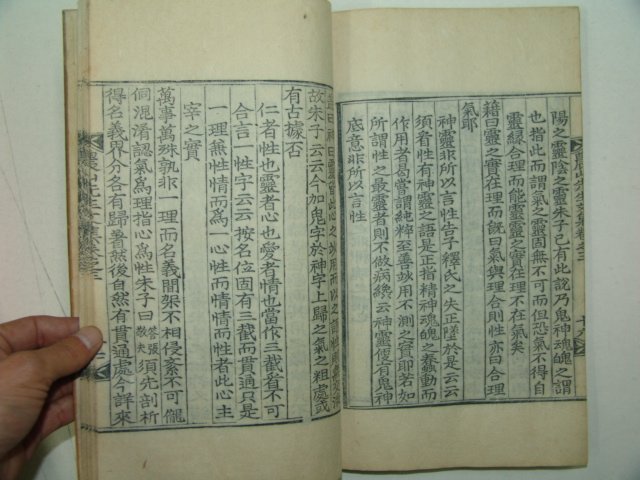 陽之靈陰之靈朱子已有此說乃鬼神魂魄之謂
也指此而謂氣之靈固無不可而但恐氣不得自
靈緣合理而能靈靈之實在理不在氣矣
籍曰靈之實在理而旣曰氣與理合則性亦曰合理
氣耶
神靈非所以言性告子釋氏之失正墜於是云云
須看性有神靈之語是正指精神魂魄之蠢動而
作用者曷嘗謂純粹至善妙用不測之實耶名如
所謂性之最靈者則不做病纔云神靈便有鬼神
底意非所以言性
故朱子云云今加鬼字於神字上歸之氣之粗處或
有古據否
仁者性也靈者心也愛者情也當作三截看不可
合言一性字云云按名位固有三截而貫通只是
一理無性情而爲一心性而情情而性者此心主
宰之實
萬事萬殊孰非一理而名義間架不相侵紊不可儱
侗混淆認氣爲理指心爲性朱子曰答張敬夫須先剖析
得名義界分各有歸著然後自然有貫通處今詳來